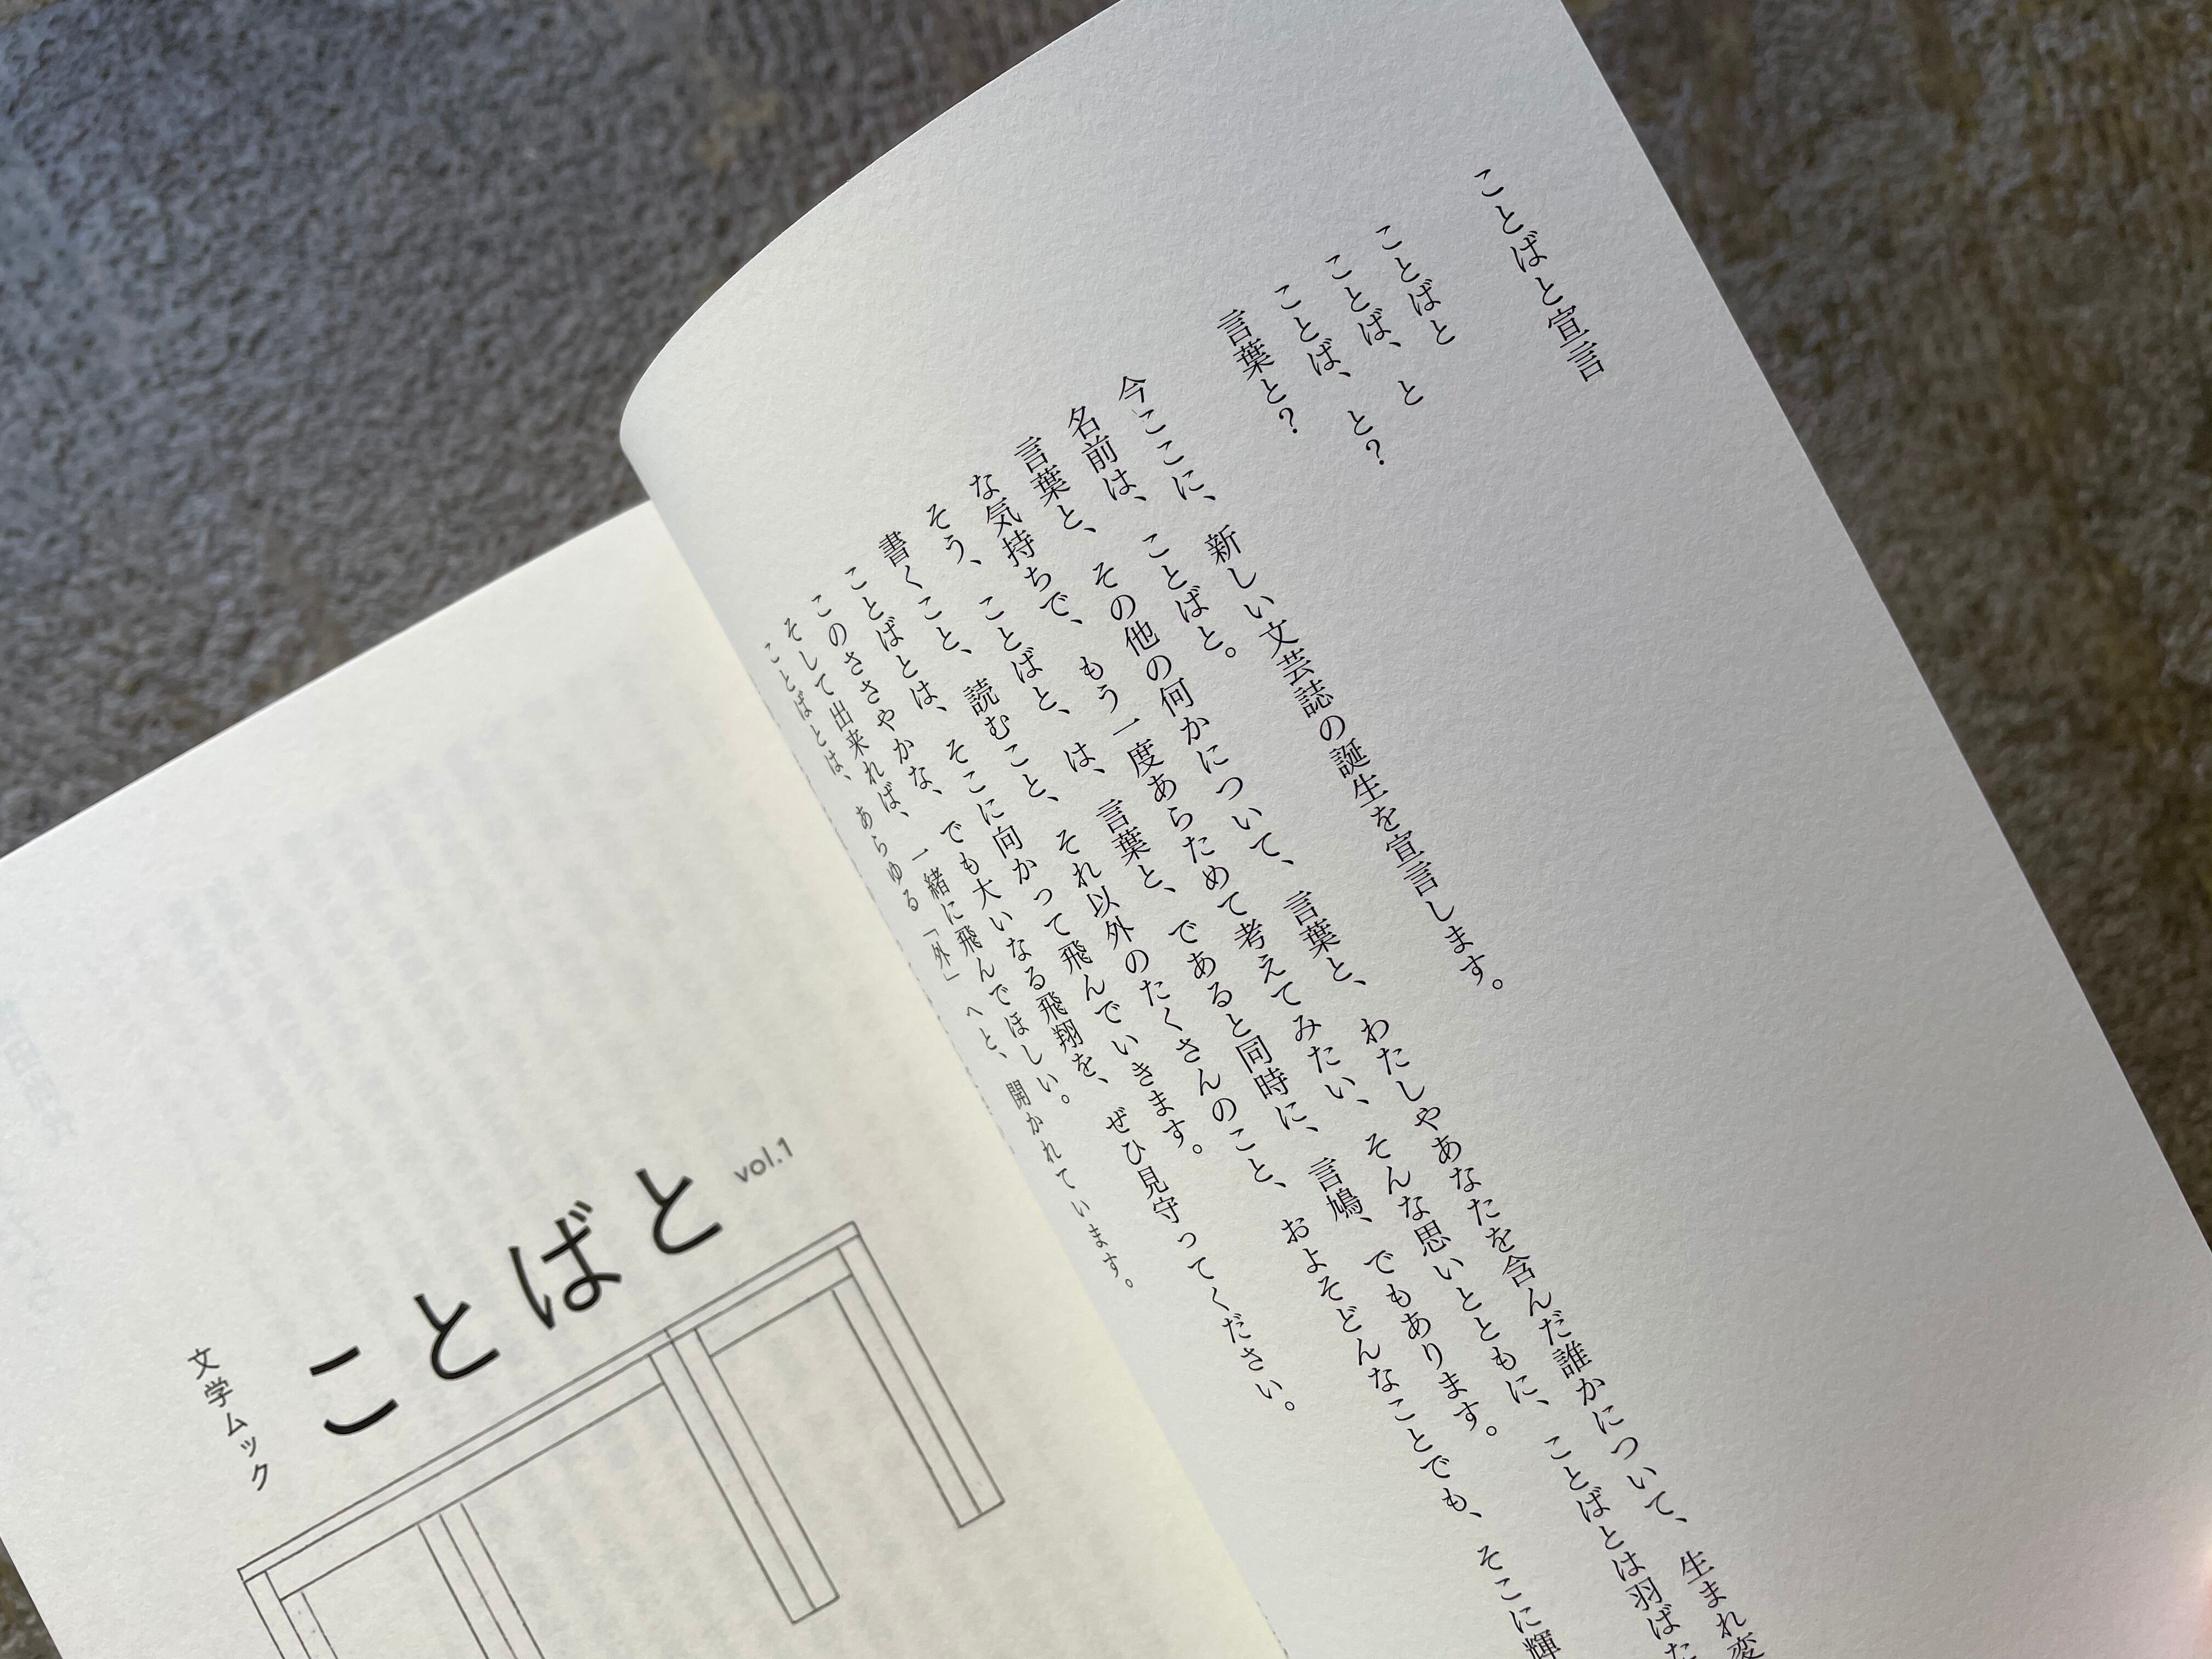 ことばと宣言
ことばと
ことば、と
ことば、と？
言葉と？
今ここに、新しい文芸誌の誕生を宣言します。
名前は、ことばと。
言葉と、その他の何かについて、言葉と、わたしやあなたを含んだ誰かについて、生まれ変
な気持ちで、もう一度あらためて考えてみたい、そんな思いとともに、ことばとは羽ばた
そう、ことばと、は、言葉と、であると同時に、言鳩、でもあります。
書くこと、読むこと、それ以外のたくさんのこと、およそどんなことでも、そこに輝
ことばとは、そこに向かって飛んでいきます。
このささやかな、でも大いなる飛翔を、ぜひ見守ってください。
そして出来れば、一緒に飛んでほしい。
ことばとは、あらゆる「外」へと、開かれています。
文学ムック
ことばと
vol.1